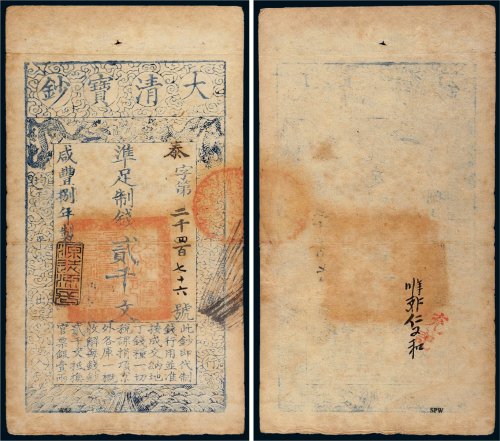 大清寶鈔
泰字第二千四百七十六號
準足制錢貳千文
咸豐捌年製
此鈔即代制
錢行用並准
按成交納地
丁錢糧一切
稅課捐項京
外各庫一概
收解每錢鈔
貳千文抵換
官票銀壹兩
仁又和
SPW